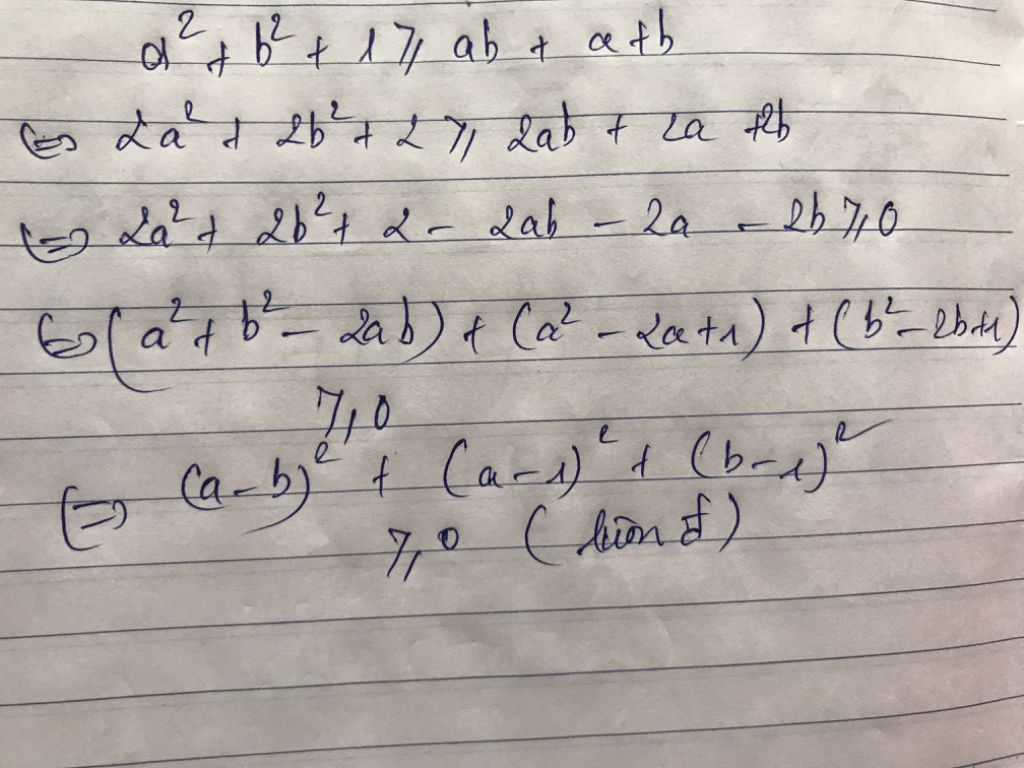 a² + b² + 1 ≥ ab + a + b
⇔ 2a² + 2b² + 2 ≥ 2ab + 2a + 2b
⇔ 2a² + 2b² + 2 - 2ab - 2a - 2b ≥ 0
⇔ (a² + b² - 2ab) + (a² - 2a + 1) + (b² - 2b + 1)
≥ 0
⇔ (a - b)² + (a - 1)² + (b - 1)²
≥ 0 (luôn đ)